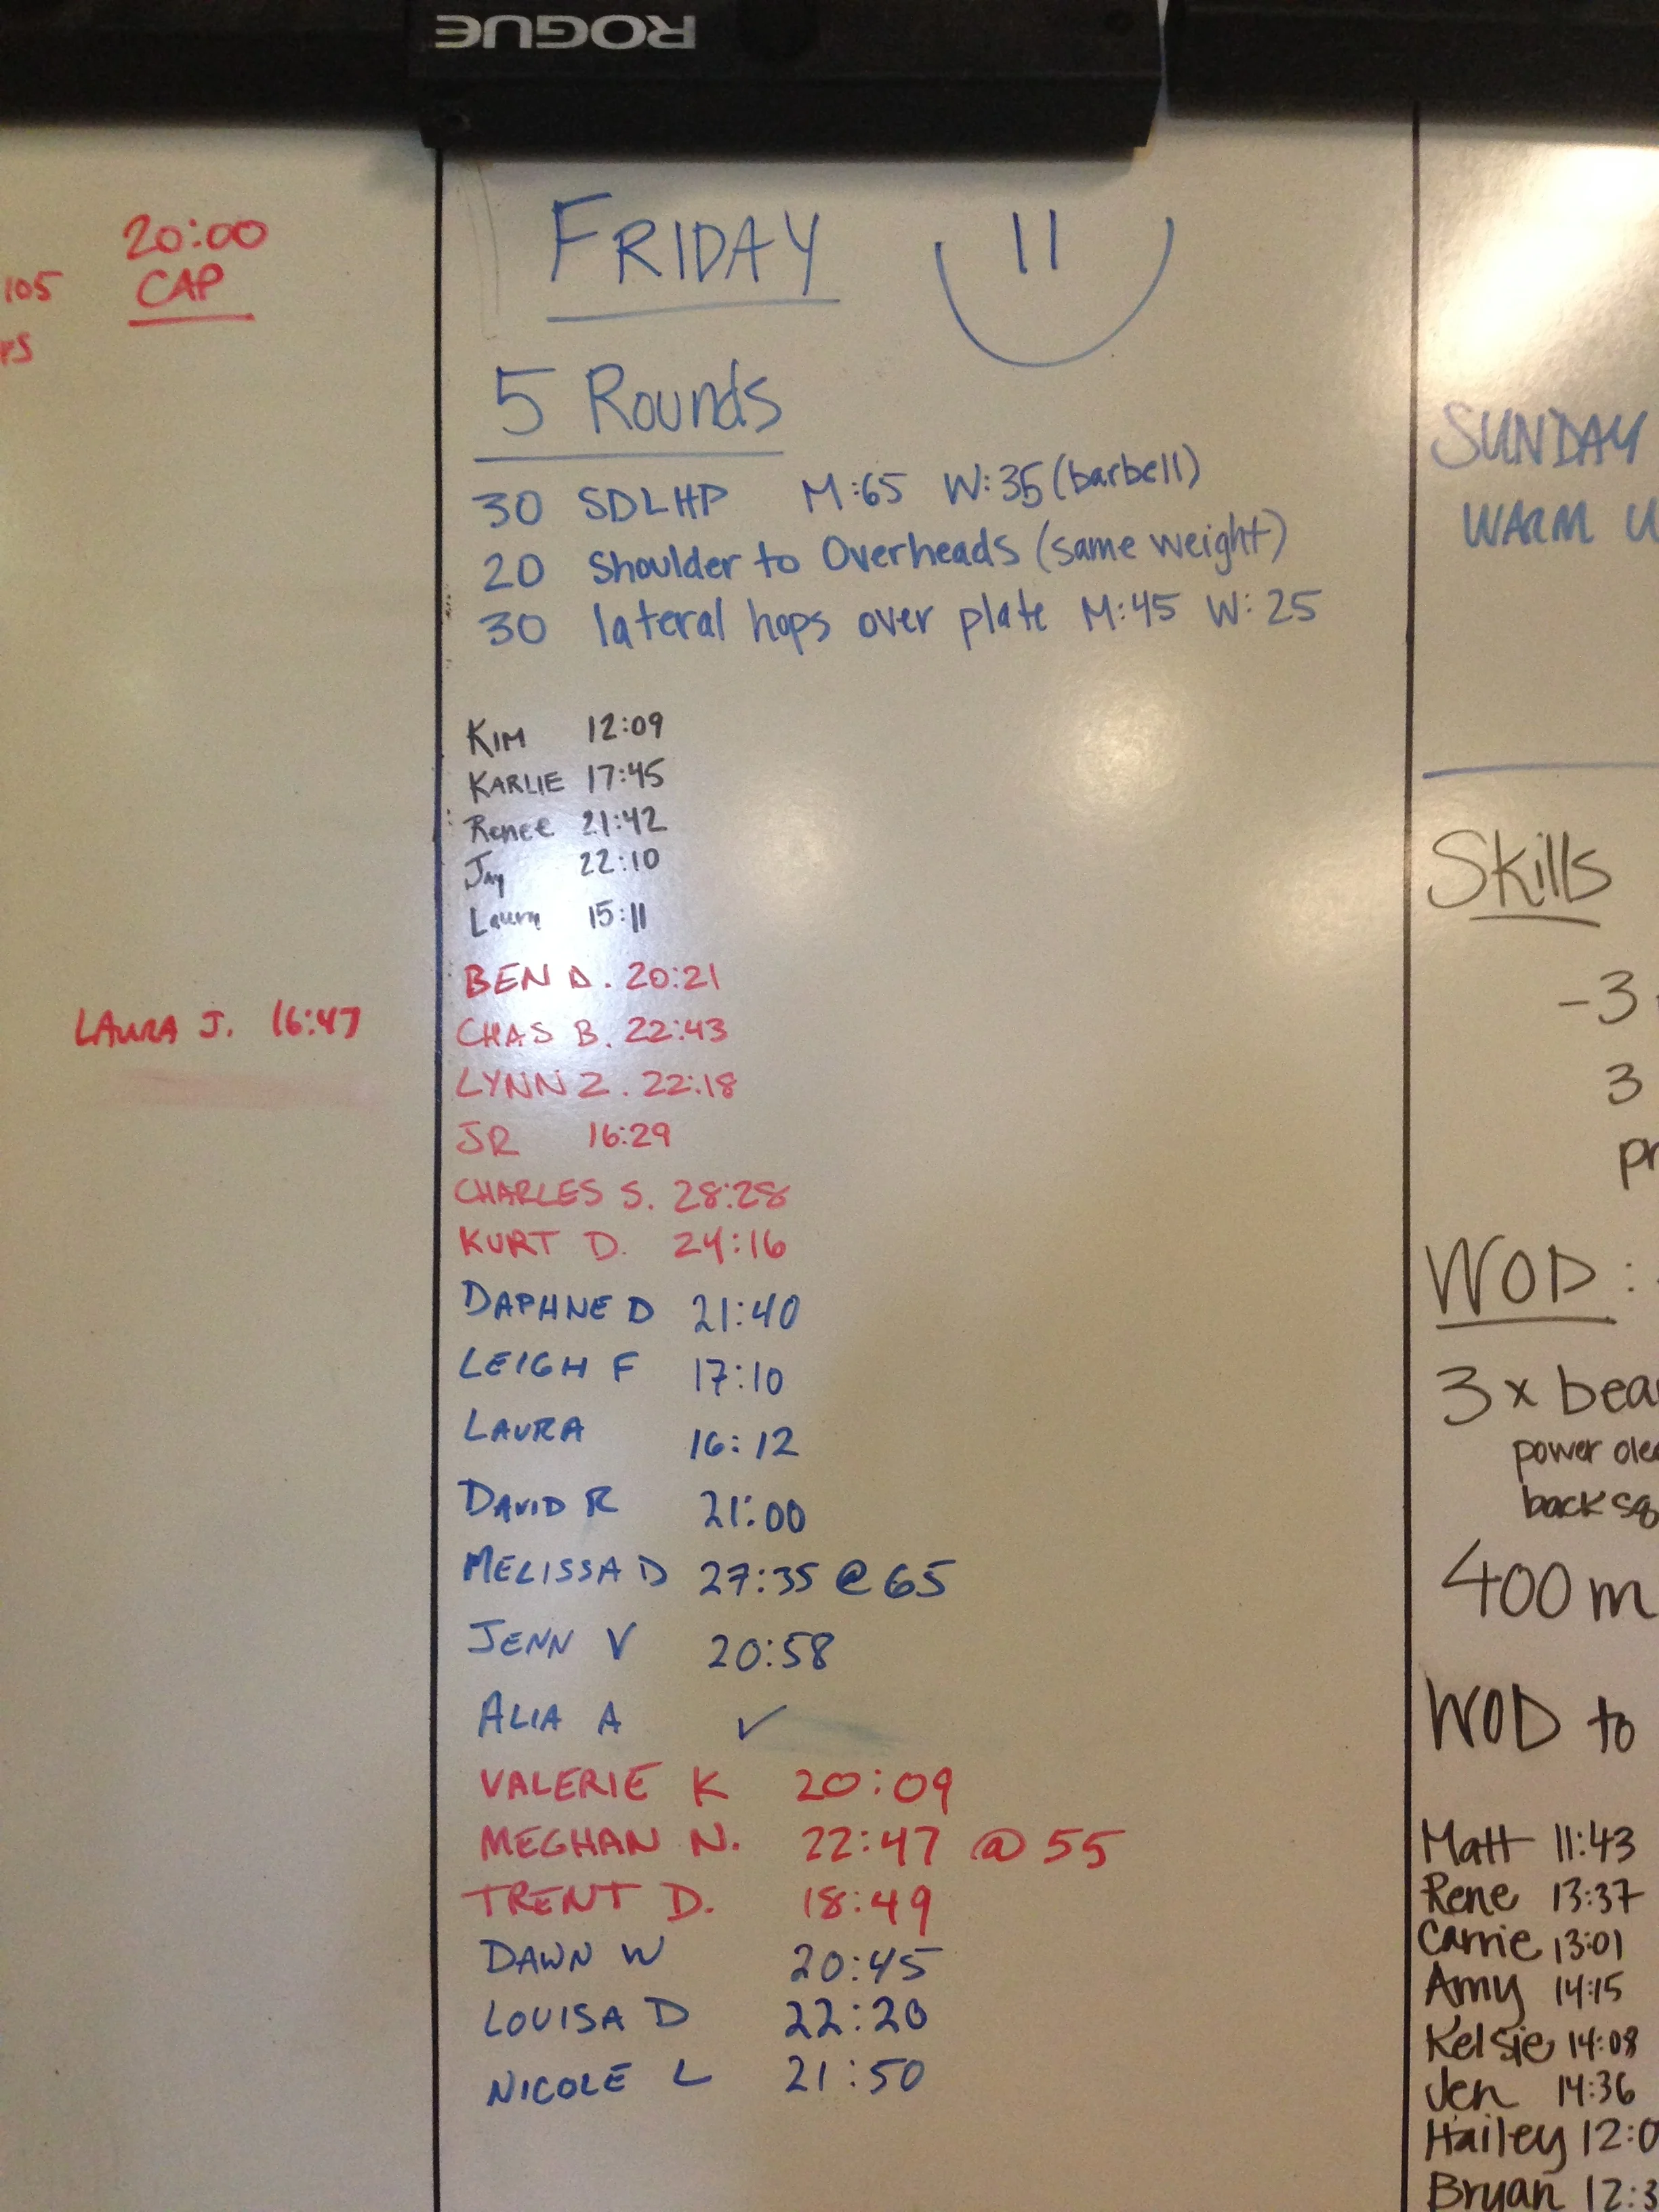 ROGUE
20:00
105 CAP
LAURA J. 16:47
FRIDAY
5 Rounds
30 SDLHP M:65 W:35 (barbell)
20 Shoulder to Overheads (same weight)
30 lateral hops over plate M:45 W:25
KIM 12:09
KARLIE 17:45
Renee 21:42
Jay 22:10
Laura 15:11
BEN D. 20:21
CHAS B. 22:43
LYNN Z. 22:18
JR 16:29
CHARLES S. 28:28
KURT D. 24:16
DAPHNE D 21:40
LEIGH F 17:10
LAURA 16:12
DAVID R 21:00
MELISSA D 27:35 @ 65
JENN V 20:58
ALIA A ✓
VALERIE K 20:09
MEGHAN N. 22:47 @ 55
TRENT D. 18:49
DAWN W 20:45
LOUISA D 22:20
NICOLE L 21:50
SUNDAY
WARM U
Skills
-3
3
pr
WOD:
3 x bea
power cle
back sq
400 m
WOD to
Matt 11:43
Rene 13:37
Carrie 13:01
Amy 14:15
Kelsie 14:08
Jen 14:36
Hailey 12:0
Bryan 12:3